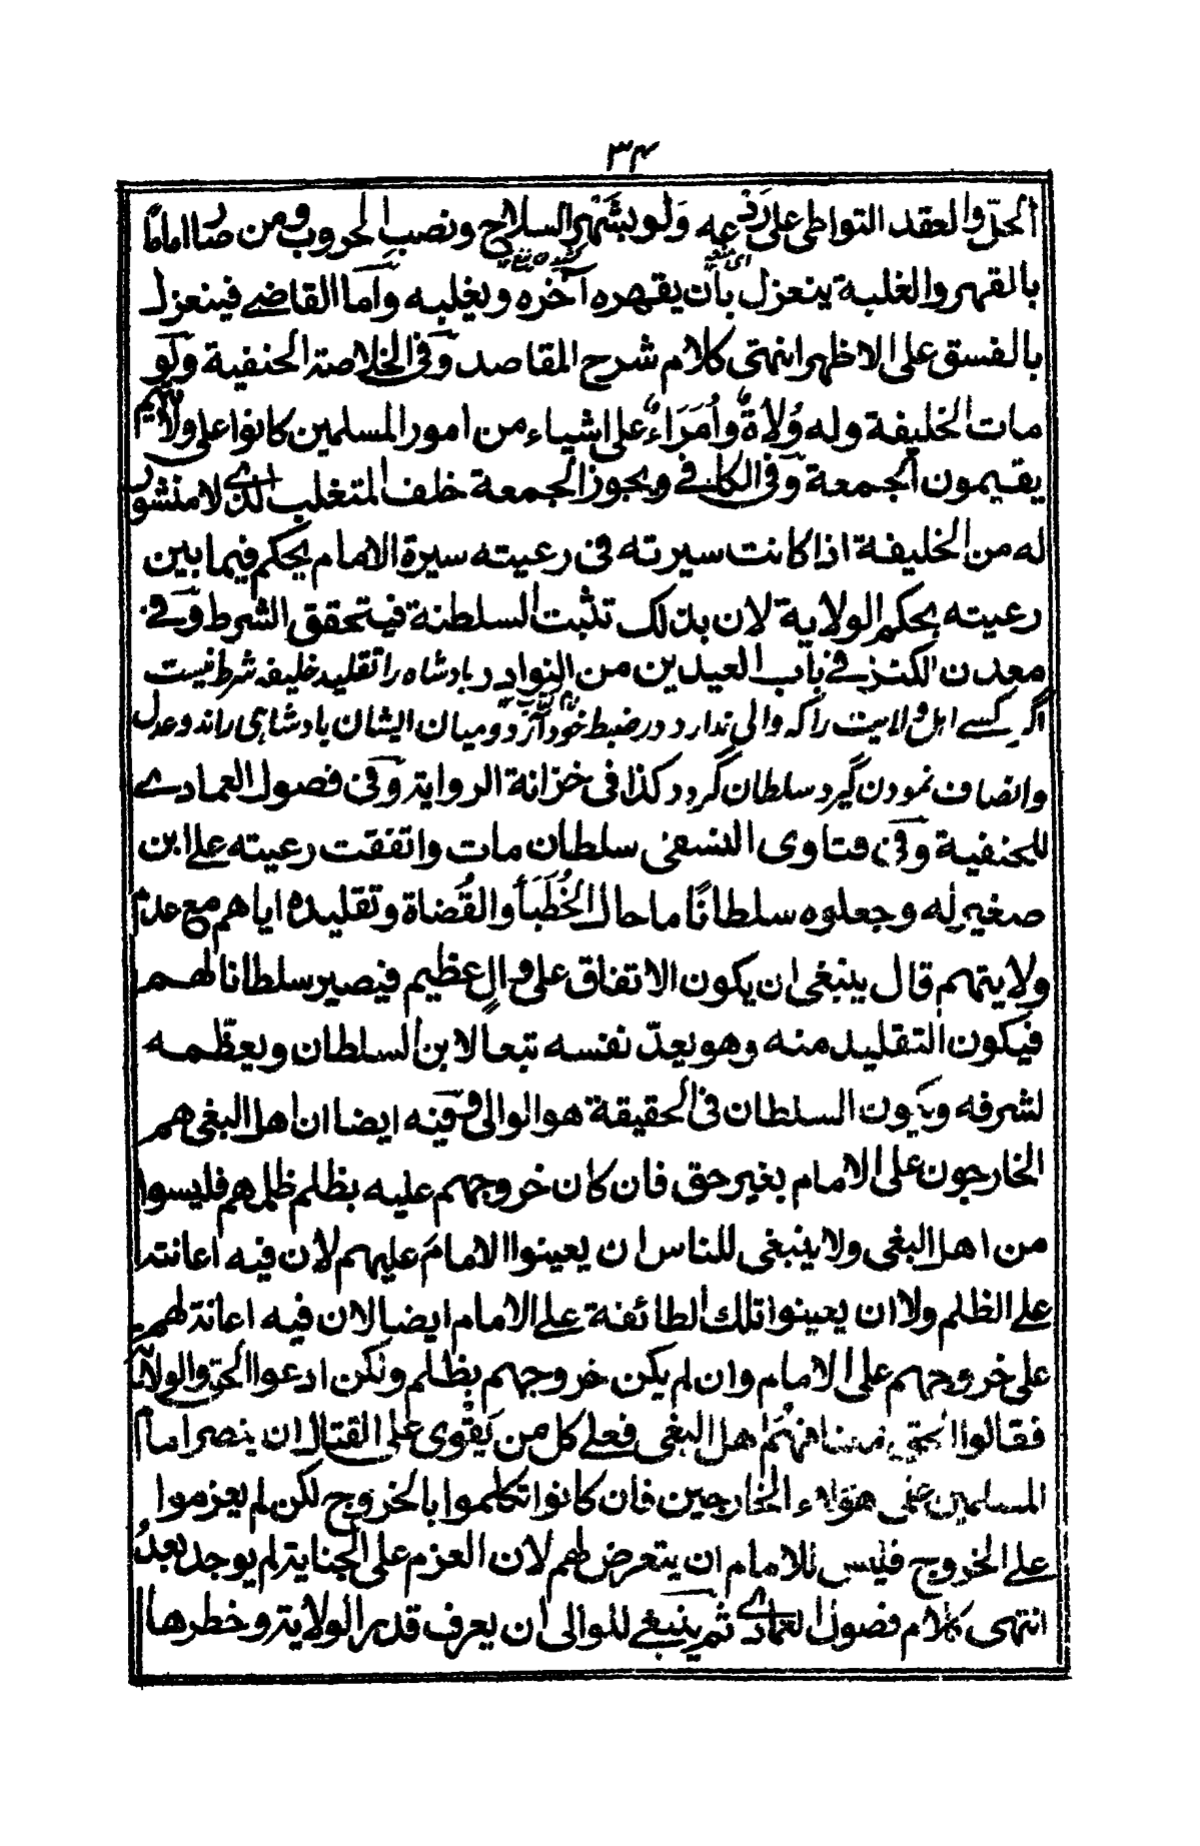 ٣٤
الحلّ والعقد التواطي على ردعه ولو بشهر السلاح ونصب الحروب ومن صار اماما
بالقهر والغلبة ينعزل بان يقهره آخره ويغلبه واما القاضي فينعزل
بالفسق على الاظهر انتهى كلام شرح المقاصد وفي الخلاصة الحنفية ولو
مات الخليفة وله وُلاةٌ واُمَرَاءُ على اشياء من امور المسلمين كانوا على ولايتهم
يقيمون الجمعة وفي الكافي ويجوز الجمعة خلف المتغلب الذي لا منشور
له من الخليفة اذا كانت سيرته في رعيته سيرة الامام يحكم فيما بين
رعيته بحكم الولاية لان بذلك تثبت السلطنة فيتحقق الشرط وفي
معدن الكنز في باب العيدين من النوادر بادشاه را تقليد خليفه شرط نيست
اگر كسے اہل ولايت را كہ والی ندارد در ضبط خود آرد و ميان ايشان بادشاہی راند و عدل
وانصاف نمودن گيرد سلطان گردد كذا في خزانة الرواية وفي فصول العمادے
للحنفية وفي فتاوى النسفي سلطان مات واتفقت رعيته على ابن
صغير له وجعلوه سلطانًا ما حال الخُطَبأ والقُضاة وتقليده اياهم مع عدم
ولايتهم قال ينبغي ان يكون الاتفاق على والٍ عظيم فيصير سلطانا لهم
فيكون التقليد منه وهو يعدّ نفسه تبعا لابن السلطان ويعظّمه
لشرفه ويكون السلطان في الحقيقة هو الوالى وفيه ايضا ان اهل البغي هم
الخارجون على الامام بغير حق فان كان خروجهم عليه بظلم ظلمهم فليسوا
من اهل البغي ولا ينبغي للناس ان يعينوا الامامَ عليهم لان فيه اعانتہ
على الظلم ولا ان يعينوا تلك الطائفة على الامام ايضا لان فيه اعانة لهم
على خروجهم على الامام وان لم يكن خروجهم بظلم ولكن ادعوا الحق والولاية
فقالوا الحق معنا فهُم اهل البغي فعلے كل من يَقْوى على القتال ان ينصر امام
المسلمين على هؤلاء الخارجين فان كانوا تكلموا بالخروج لكن لم يعزموا
على الخروج فليس للامام ان يتعرض لهم لان العزم على الجناية لم يوجد بعدُ
انتهى كلام فصول العمادے ثم ينبغي للوالى ان يعرف قدر الولاية وخطرها